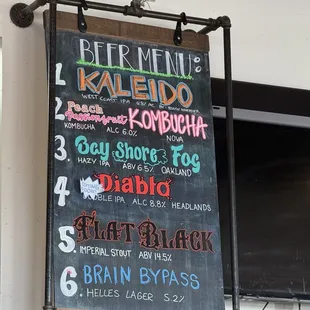 BEER MENU:
1 KALEIDO
WEST COAST IPA
2 Peach
Passionfruit KOMBUCHA
KOMBUCHA ALC 6.0% NOVA
3. Bay Shore Fog
HAZY IPA ABV 6.5% OAKLAND
4 Diablo
IPA ALC 8.8% HEADLANDS
5. FLAT BLACK
IMPERIAL STOUT ABV 14.5%
6 BRAIN BYPASS
HELLES LAGER 5.2%